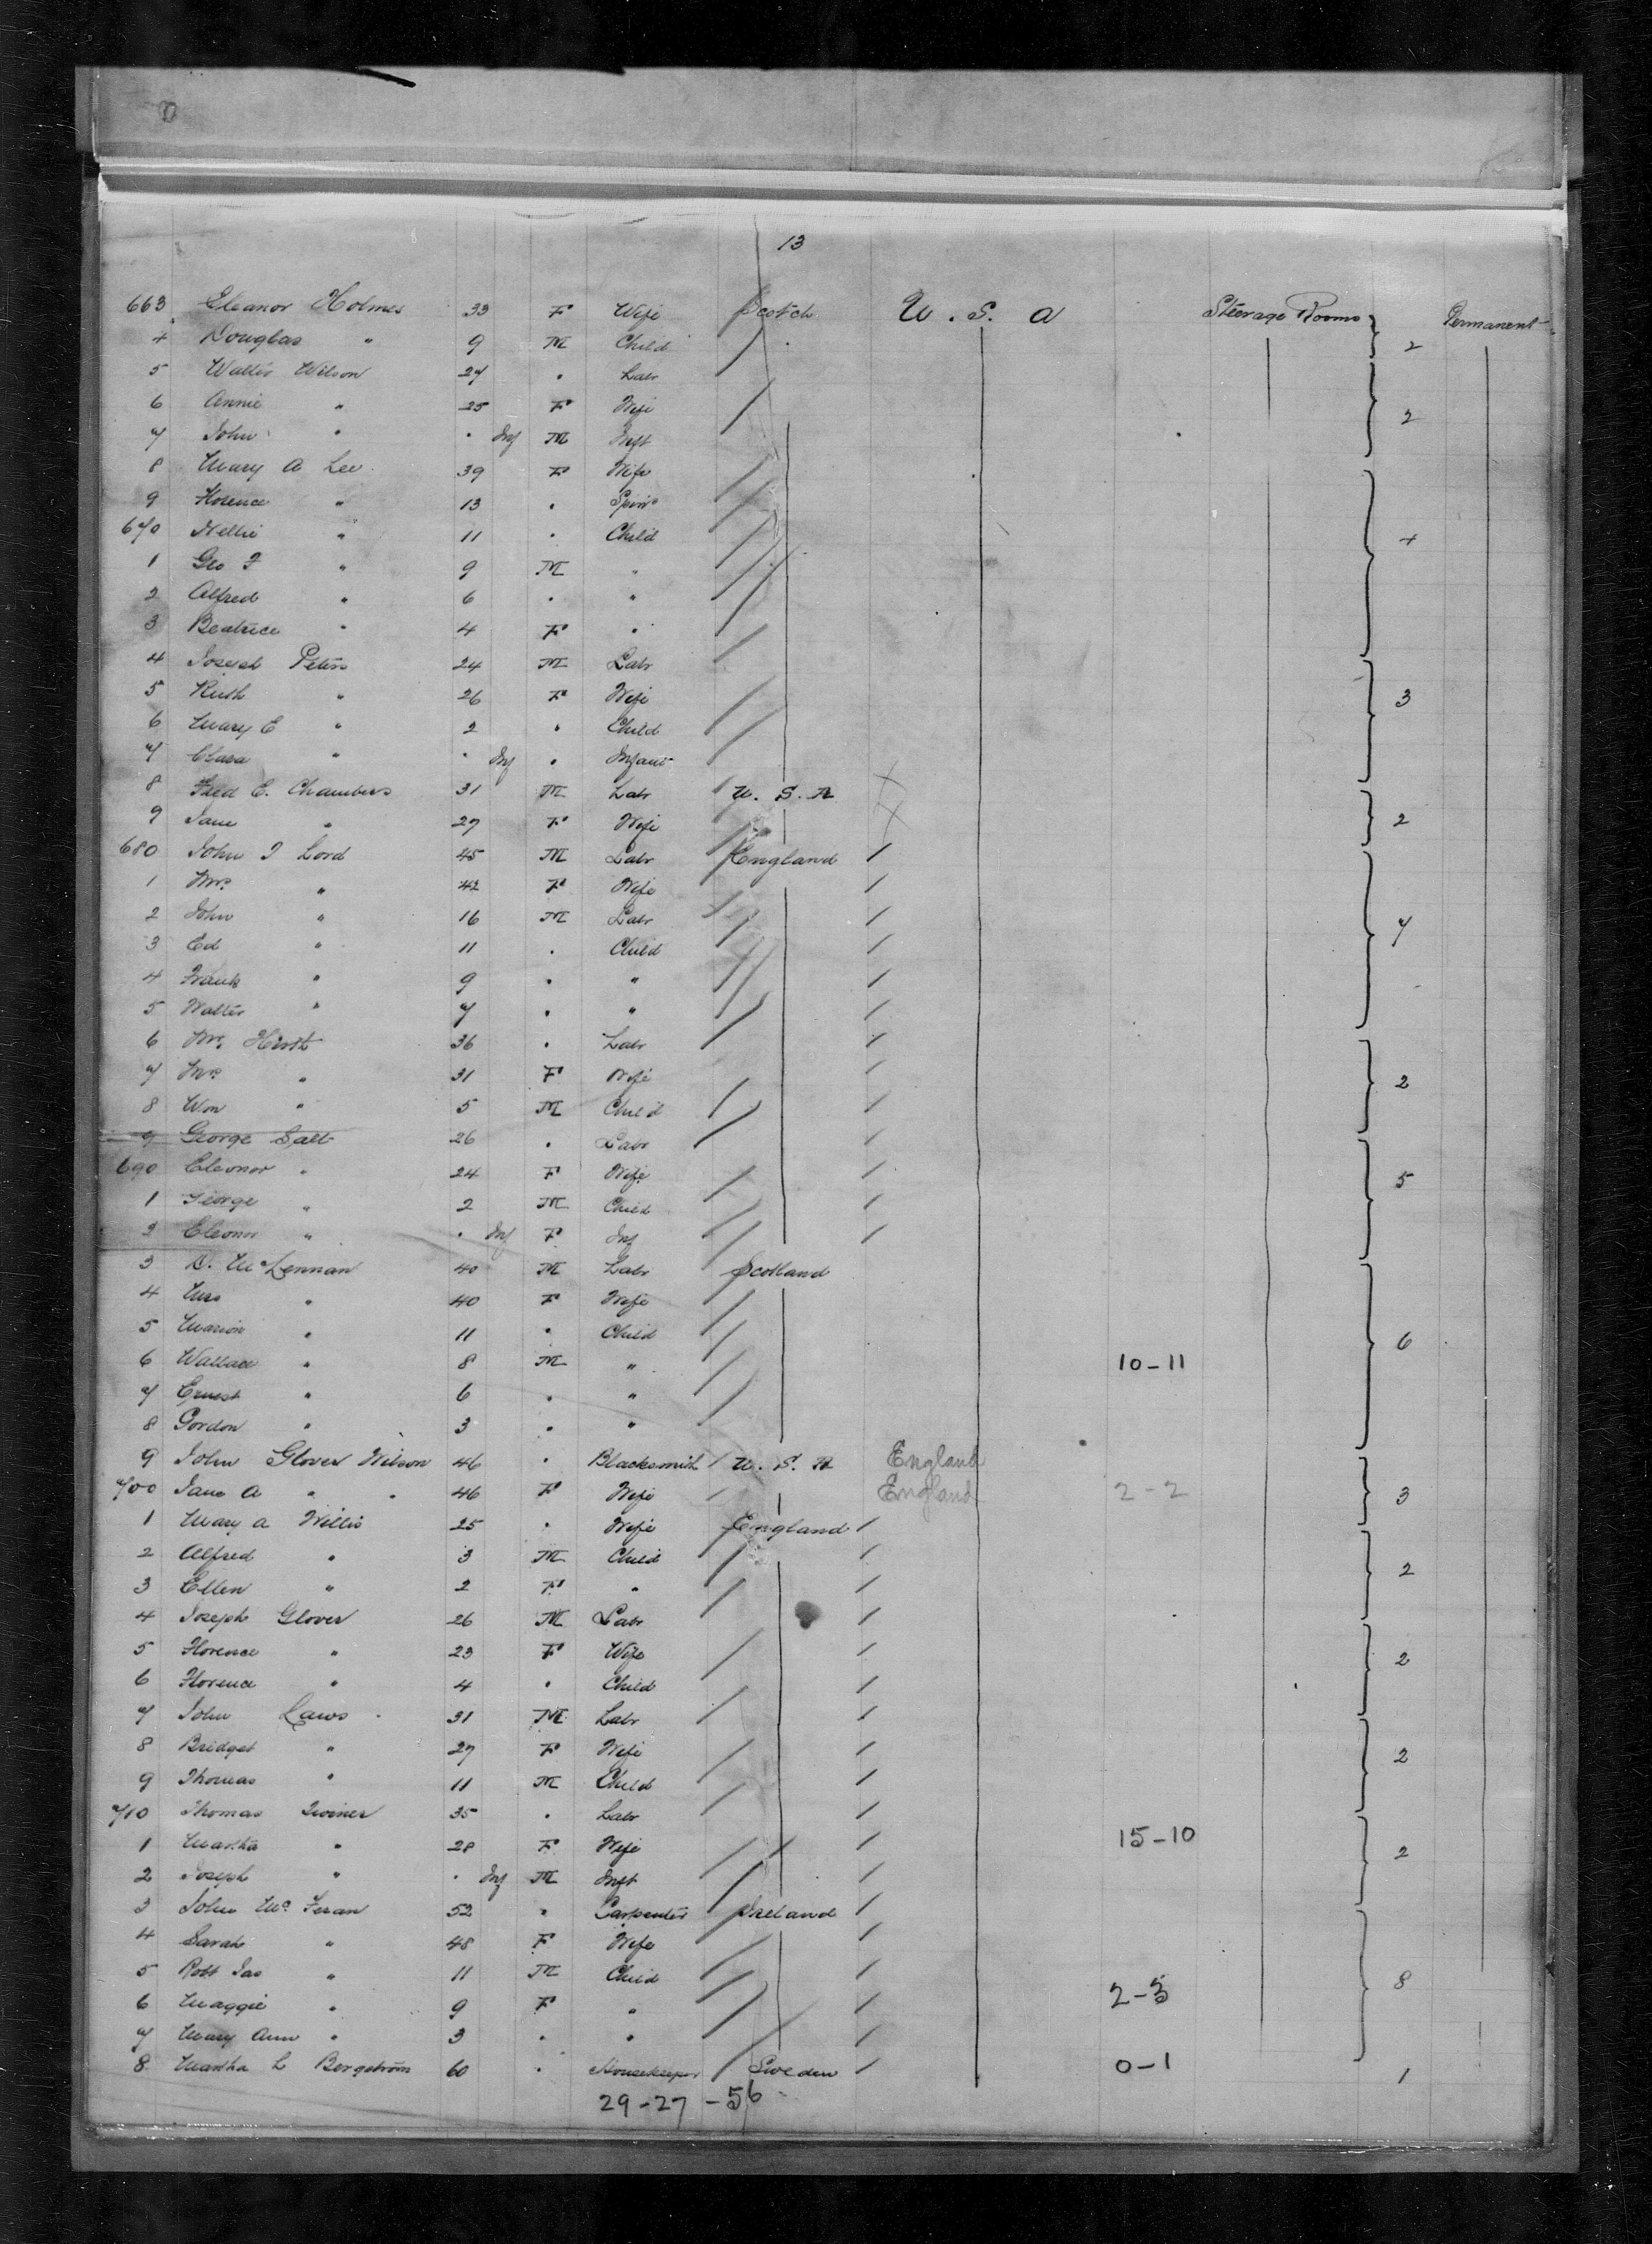 13
663 Eleanor Holmes 33 F Wife Scotch U. S. A Steerage Rooms 2 Permanent
4 Douglas " 9 M Child
5 Walter Wilson 27 " Labr
6 Annie " 25 F Wife 2
7 John " " Inf M Inft
8 Mary A Lee 39 F Wife
9 Florence " 13 " Spinr
670 Nellie " 11 " Child 4
1 Geo F " 9 M "
2 Alfred " 6 " "
3 Beatrice " 4 F "
4 Joseph Peters 24 M Labr
5 Ruth " 26 F Wife 3
6 Mary E " 2 " Child
7 Clara " " Inf " Infant
8 Fred E. Chambers 31 M Labr U. S. A
9 Jane " 27 F Wife 2
680 John T Lord 45 M Labr England
1 Mrs " 42 F Wife
2 John " 16 M Labr
3 Ed " 11 " Child 7
4 Frank " 9 " "
5 Walter " 7 " "
6 Mr. Hirst 36 " Labr
7 Mrs " 31 F Wife 2
8 Wm " 5 M Child
9 George Salt 26 " Labr
690 Eleonor " 24 F Wife 5
1 George " 2 M Child
2 Eleonor " " Inf F Inf
3 D. McLennan 40 M Labr Scotland
4 Mrs " 40 F Wife
5 Marion " 11 " Child 6
6 Wallace " 8 M " 10-11
7 Ernest " 6 " "
8 Gordon " 3 " "
9 John Glover Wilson 46 " Blacksmith U. S. A England
700 Jane A " " 46 F Wife England 2-2 3
1 Mary A Willis 25 " Wife England
2 Alfred " 3 M Child 2
3 Ellen " 2 F "
4 Joseph Glover 26 M Labr
5 Florence " 23 F Wife 2
6 Florence " 4 " Child
7 John Laws 31 M Labr
8 Bridget " 27 F Wife 2
9 Thomas " 11 M Child
710 Thomas 35 " Labr
1 Martha " 28 F Wife 15-10 2
2 Joseph " " Inf M Inft
3 John Mc Feran 52 " Carpenter Ireland
4 Sarah " 48 F Wife
5 Robt Jas " 11 M Child 8
6 Maggie " 9 F " 2-3
7 Mary Ann " 3 " "
8 Martha L Bergström 60 " Housekeeper Sweden 0-1 1
29-27-56